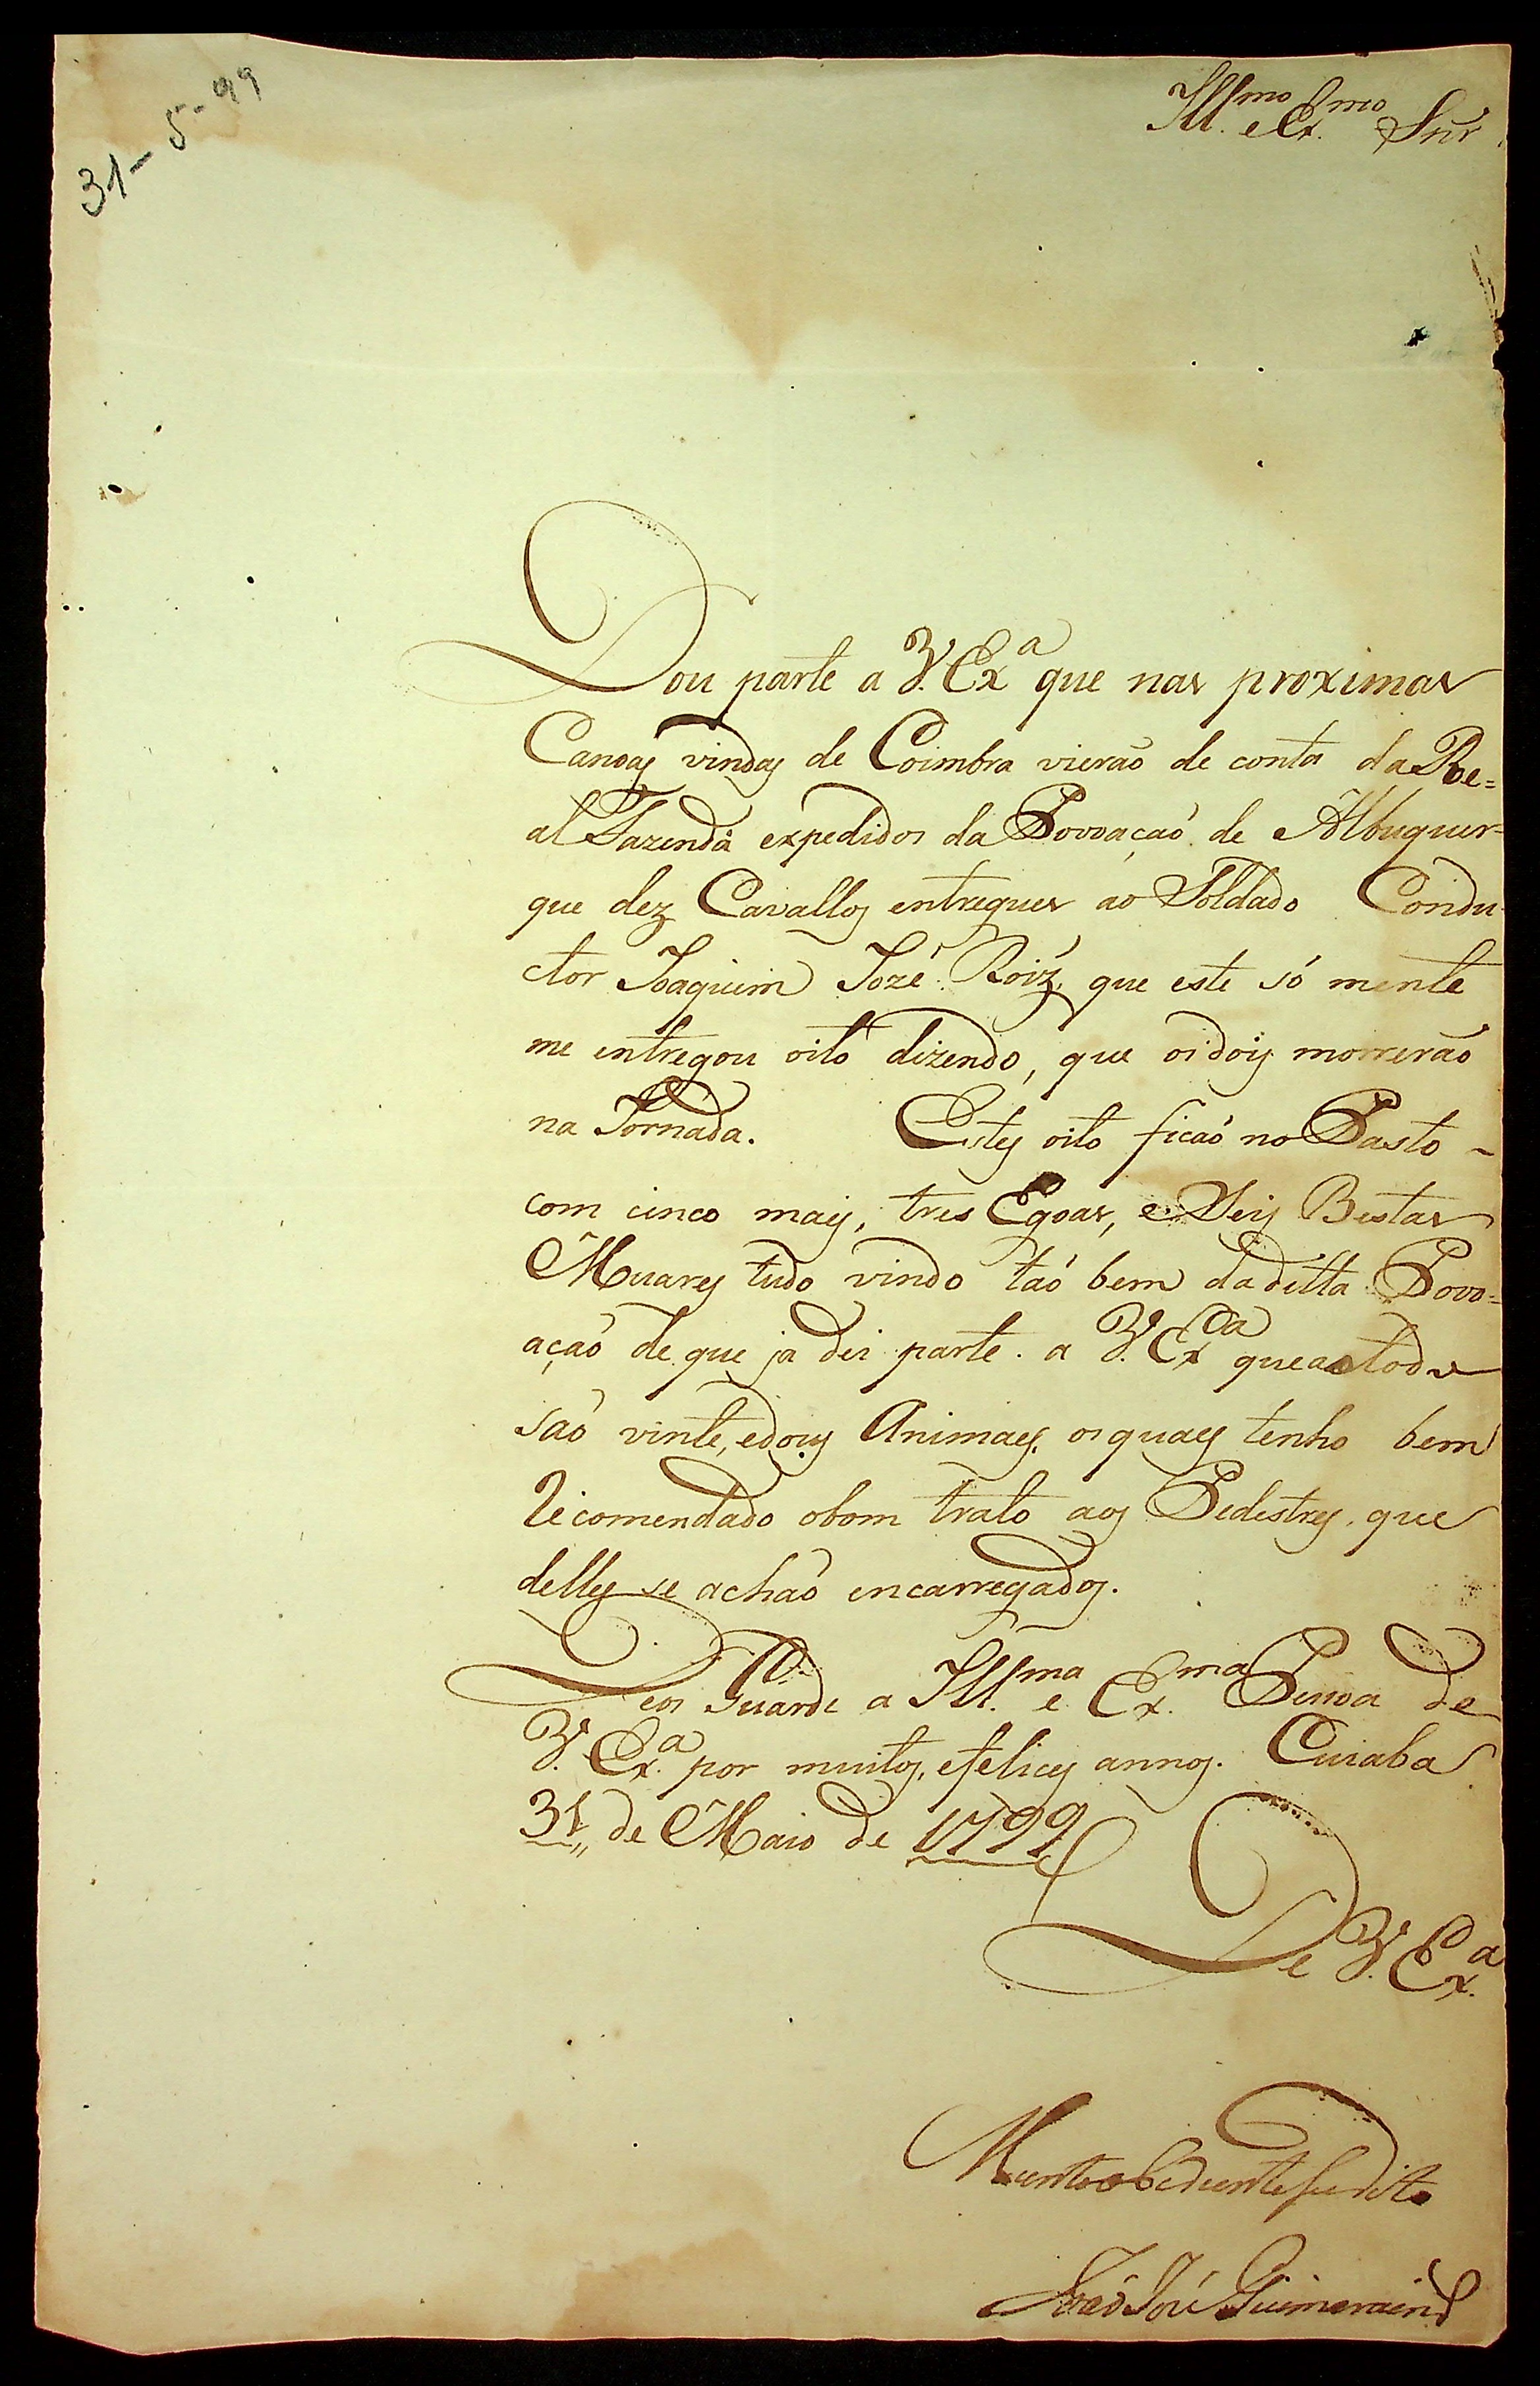 31-5-99
Ill.mo e Ex.mo Snr
Dou parte a V. Exa que nas proximas
Canoas vindas de Coimbra vieraõ de conta da Re=
al Fazenda expedidos da Povoaçaõ de Albuquer-
que dez Cavallos entregues ao Soldado Condu
ctor Joaquim Jozé Roiz, que este só mente
me entregou oito dizendo, que os dois morreraõ
na Jornada. Estes oito ficaõ no Pasto -
com cinco mais, tres Egoas, e Seis Bestas
Muares tudo vindo taõ bem da ditta Povo=
açaõ de que ja dei parte a V. Exa que ao todo
saõ vinte, e dois Animaes, os quaes tenho bem
recomendado o bom trato aos Pedestres, que
delles se achaõ encarregados.
Deos Guarde a Ill.ma e Ex.ma Pessoa de
V. Ex.a por muitos, e felices annos. Cuiaba
31,, de Maio de 1799
De V. Ex.a
Muito obediente subdito
Joaõ José Guimeraens